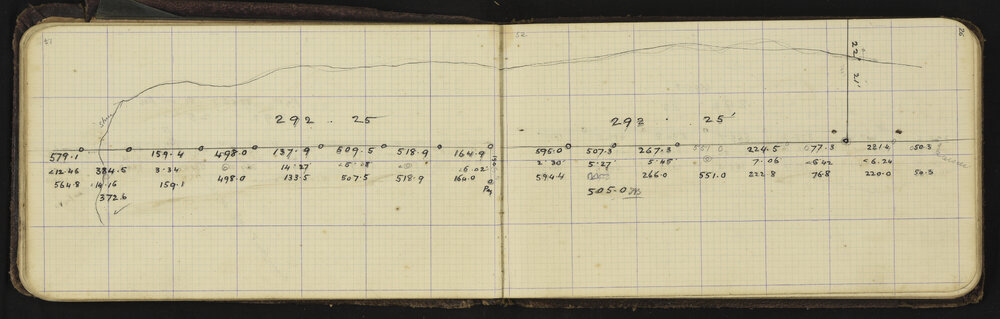 51
292 . 25
579.1 159.4 498.0 137.9 509.5 518.9 164.9
<12.46 384.5 3.34 14.27 <5.08 <5.02
564.8 14.16 159.1 498.0 133.5 507.5 518.9 164.0
372.6
Peg
52
26
22° 21'
292 . 25'
596.0 507.3 267.3 551.0 224.5 77.3 221.4 50.3
2.30 5.27 5.45 7.06 <6.42 <6.24
594.4 266.0 551.0 222.8 76.8 220.0 50.3
505.0